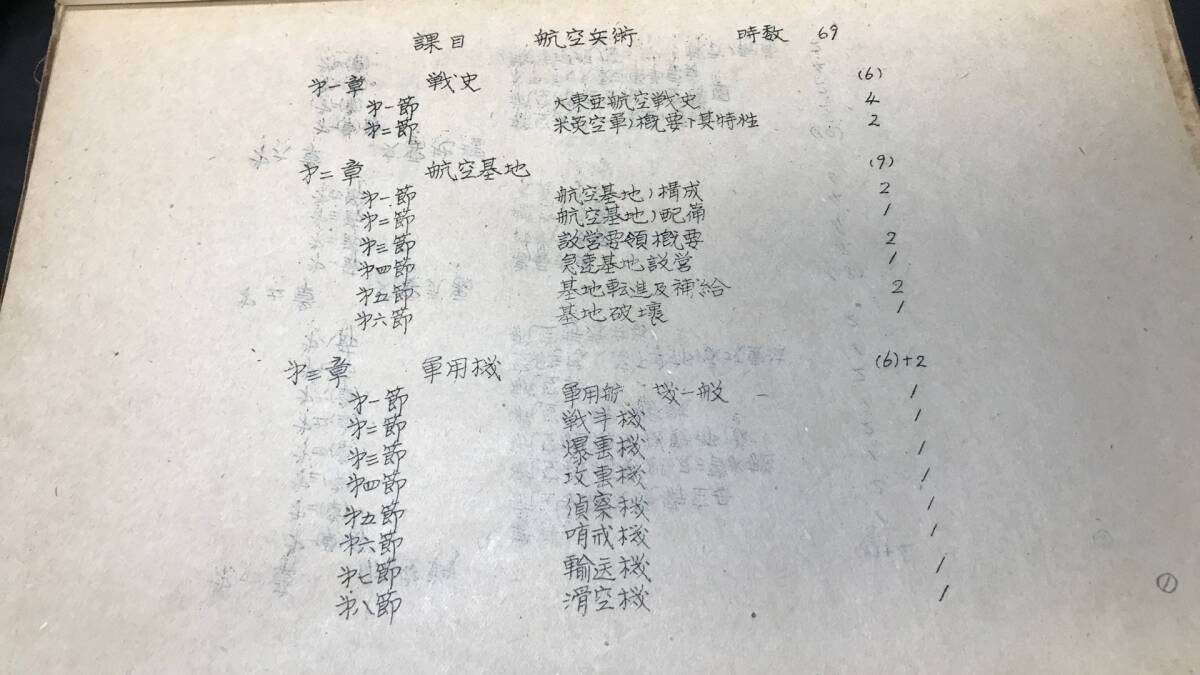 課目 航空兵術 時数 69
第一章 戦史 (6)
第一節 大東亜航空戦史 4
第二節 米英空軍ノ概要ト其特性 2
第二章 航空基地 (9)
第一節 航空基地ノ構成 2
第二節 航空基地ノ配備 1
第三節 設営要領概要 2
第四節 急速基地設営 1
第五節 基地転進及補給 2
第六節 基地破壊 1
第三章 軍用機 (6)+2
第一節 軍用航 機一般 1
第二節 戦斗機 1
第三節 爆撃機 1
第四節 攻撃機 1
第五節 偵察機 1
第六節 哨戒機 1
第七節 輸送機 1
第八節 滑空機 1
①